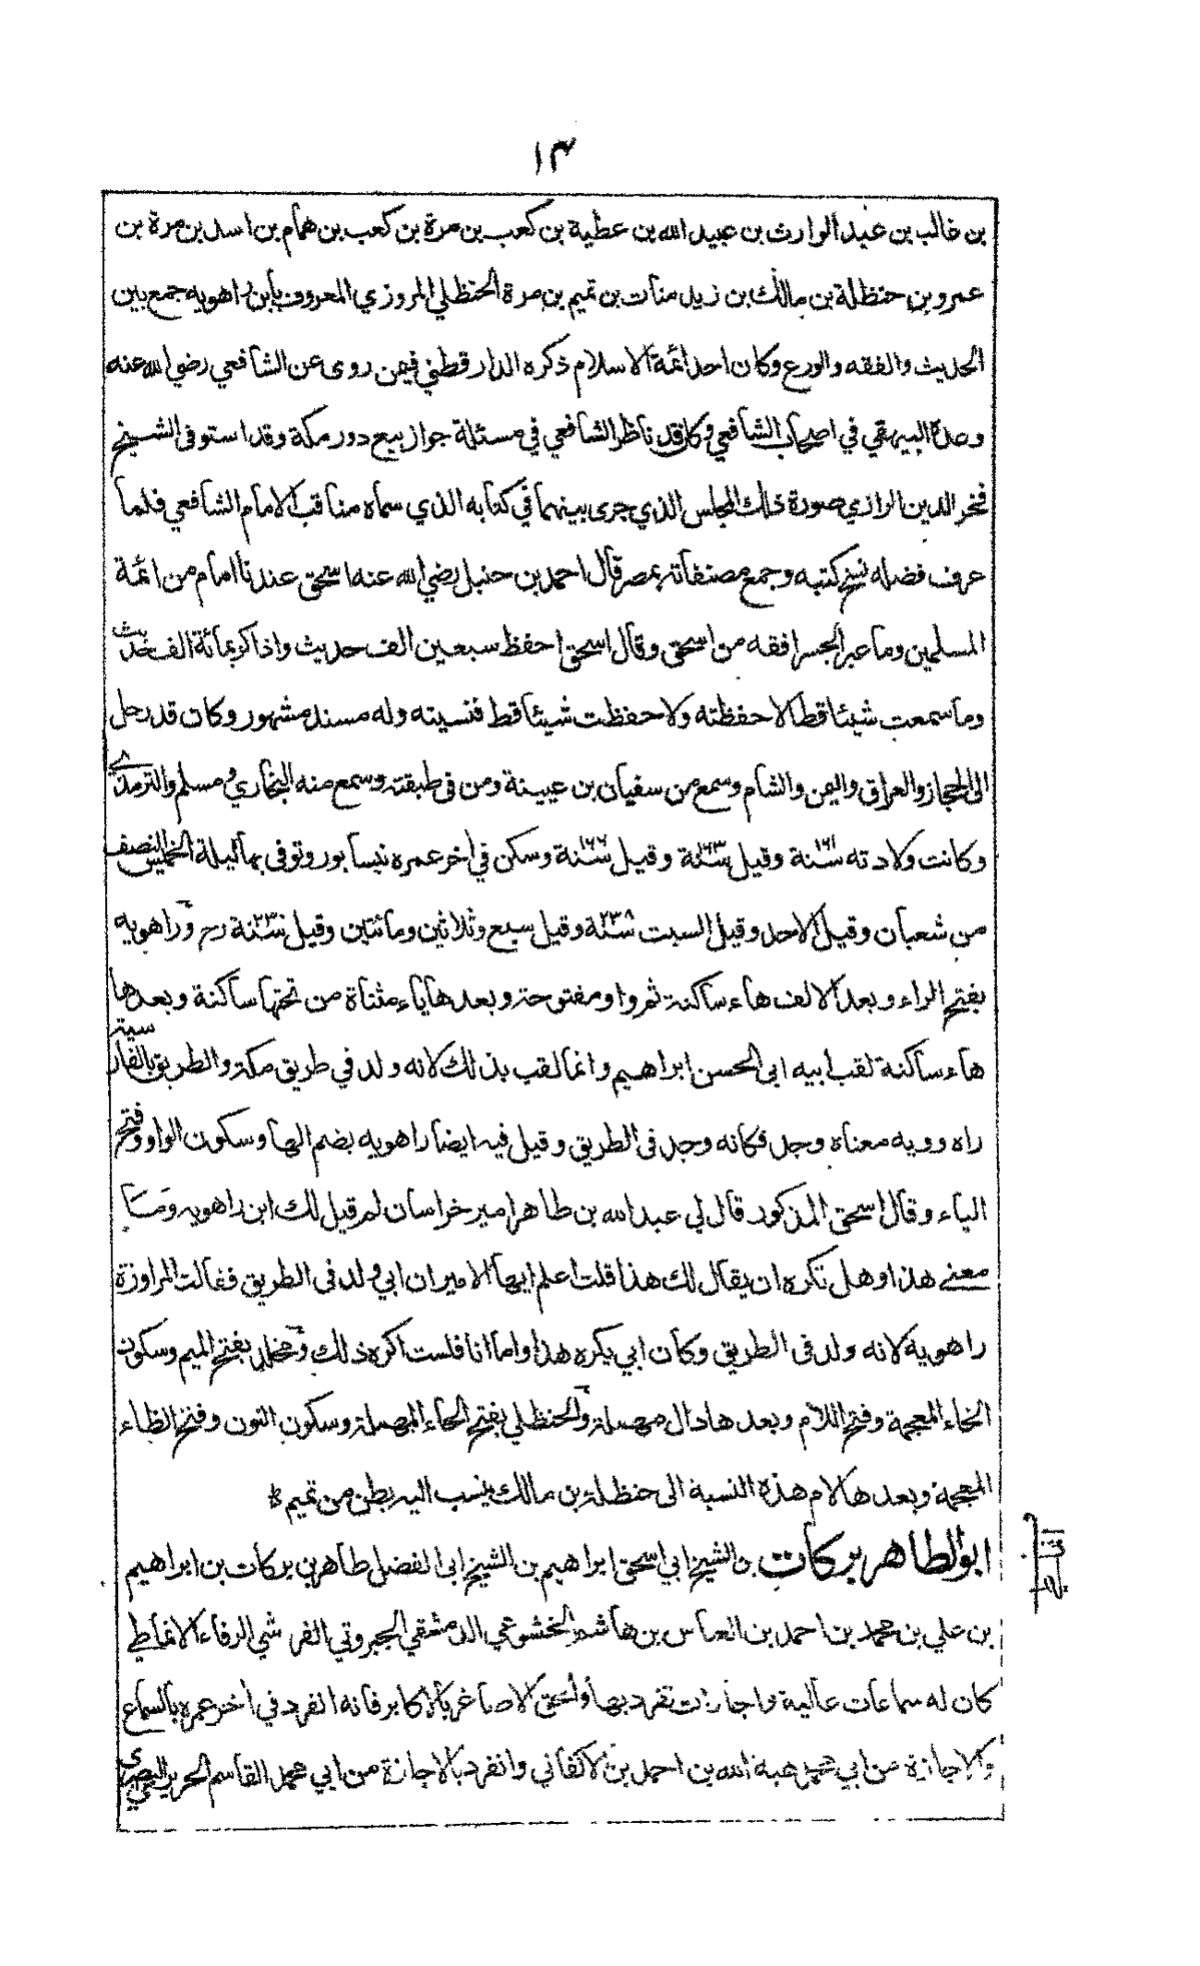 ١٣
بن غالب بن عبد الوارث بن عبيد الله بن عطية بن كعب بن مرة بن كعب بن همام بن اسد بن مرة بن
عمرو بن حنظلة بن مالك بن زيد منات بن تميم بن مرة الحنظلي المروزي المعروف بابن راهويه جمع بين
الحديث والفقه والورع وكان احد ائمة الاسلام ذكره الدارقطني فيمن روى عن الشافعي رضي الله عنه
وعدة البيهقي في اصحاب الشافعي وكان قد ناظر الشافعي في مسئلة جواز بيع دور مكة وقد استوفى الشيخ
فخر الدين الرازي صورة ذلك المجلس الذي جرى بينهما في كتابه الذي سماه مناقب الامام الشافعي فلما
عرف فضله نسخ كتبه وجمع مصنفاته بمصر قال احمد بن حنبل رضي الله عنه اسحق عندنا امام من ائمة
المسلمين وما عبر الجسر افقه من اسحق وقال اسحق احفظ سبعين الف حديث واذاكر بمائة الف حديث
وما سمعت شيئا قط الا حفظته ولا حفظت شيئا قط فنسيته وله مسند مشهور وكان قد رحل
الى الحجاز والعراق واليمن والشام وسمع من سفيان بن عيينة ومن فى طبقته وسمع منه البخاري ومسلم والترمذي
وكانت ولادته سنة ١٦١ وقيل سنة ١٦٣ وقيل سنة ١٦٦ وسكن في اخر عمره نيسابور وتوفى بها ليلة الخميس النصف
من شعبان وقيل الاحد وقيل السبت سنة ٢٣٨ وقيل سبع وثلاثين ومائتين وقيل سنة ٢٣٠ رح وراهويه
بفتح الراء وبعد الالف هاء ساكنة ثم واو مفتوحة وبعدها ياء مثناة من تحتها ساكنة وبعدها
هاء ساكنة لقب ابيه ابى الحسن ابراهيم وانما لقب بذلك لانه ولد في طريق مكة والطريق بالفارسية
راه وويه معناه وجد فكانه وجد فى الطريق وقيل فيه ايضا راهويه بضم الها وسكون الواو وفتح
الياء وقال اسحق المذكور قال لي عبد الله بن طاهر امير خراسان لم قيل لك ابن راهويه وما
معنى هذا وهل تكره ان يقال لك هذا قلت اعلم ايها الامير ان ابي ولد فى الطريق فقالت المراوزة
راهوية لانه ولد فى الطريق وكان ابي يكره هذا واما انا فلست اكره ذلك ومخلد بفتح الميم وسكون
الخاء المعجمة وفتح اللام وبعدها دال مهملة والحنظلي بفتح الحاء المهملة وسكون النون وفتح الظاء
المعجمة وبعدها لام هذه النسبة الى حنظلة بن مالك ينسب اليه بطن من تميم
ابو الطاهر بركات بن الشيخ ابي اسحق ابراهيم بن الشيخ ابى الفضل طاهر بن بركات بن ابراهيم
بن علي بن محمد بن احمد بن العباس بن هاشم الخشوعي الدمشقي الجيروتي الفرشي الرفاء الانماطي
كان له سماعات عالية واجازات تفرد بها والحق الاصاغر بالاكابر فانه انفرد في اخر عمره بالسماع
والاجازة من ابي محمد هبة الله بن احمد بن الاكفاني وانفرد بالاجازة من ابي محمد القاسم الحريري البصري